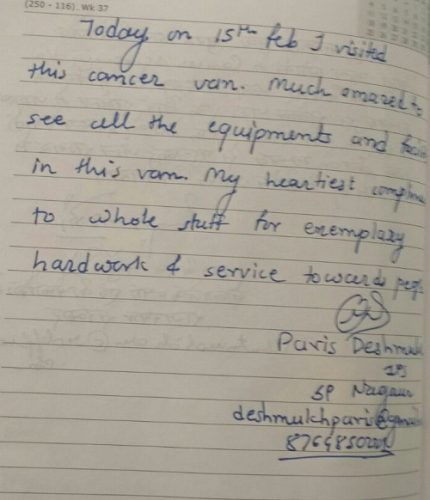 (250 - 116). Wk 37
Today on 15th feb I visited
this cancer van. Much amazed to
see all the equipments and
in this van. My heartiest
to whole stuff for exemplary
hardwork & service towards
Paris Deshmukh
IPS
SP Nagaur